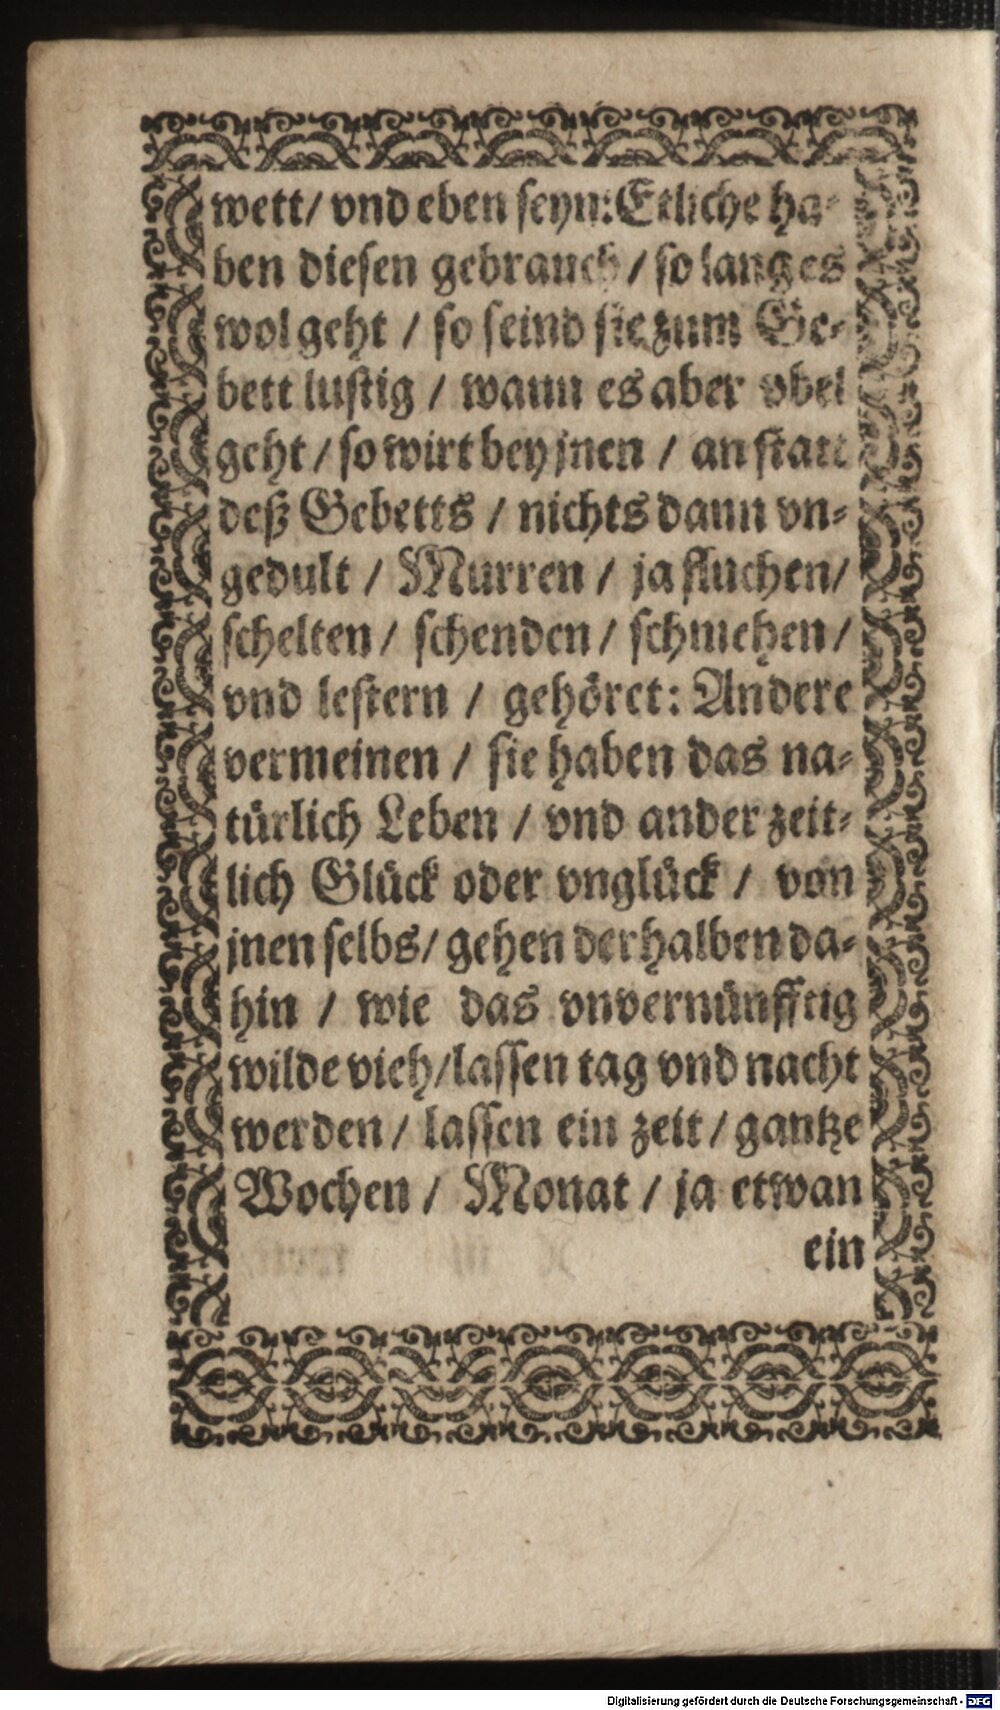 wett/ vnd eben seyn: Etliche ha-
ben diesen gebrauch / so lang es
wol geht / so seind sie zum Ge-
bett lustig / wann es aber vbel
geht / so wirt bey jnen / an statt
deß Gebetts / nichts dann vn-
gedult / Murren / ja fluchen/
schelten / schenden / schmehen /
vnd lestern / gehöret: Andere
vermeinen / sie haben das na-
türlich Leben / vnd ander zeit-
lich Glück oder vnglück / von
jnen selbs / gehen derhalben da-
hin / wie das vnvernünfftig
wilde vieh/lassen tag vnd nacht
werden / lassen ein zeit / gantze
Wochen / Monat / ja etwan
ein
Digitalisierung gefördert durch die Deutsche Forschungsgemeinschaft - DFG